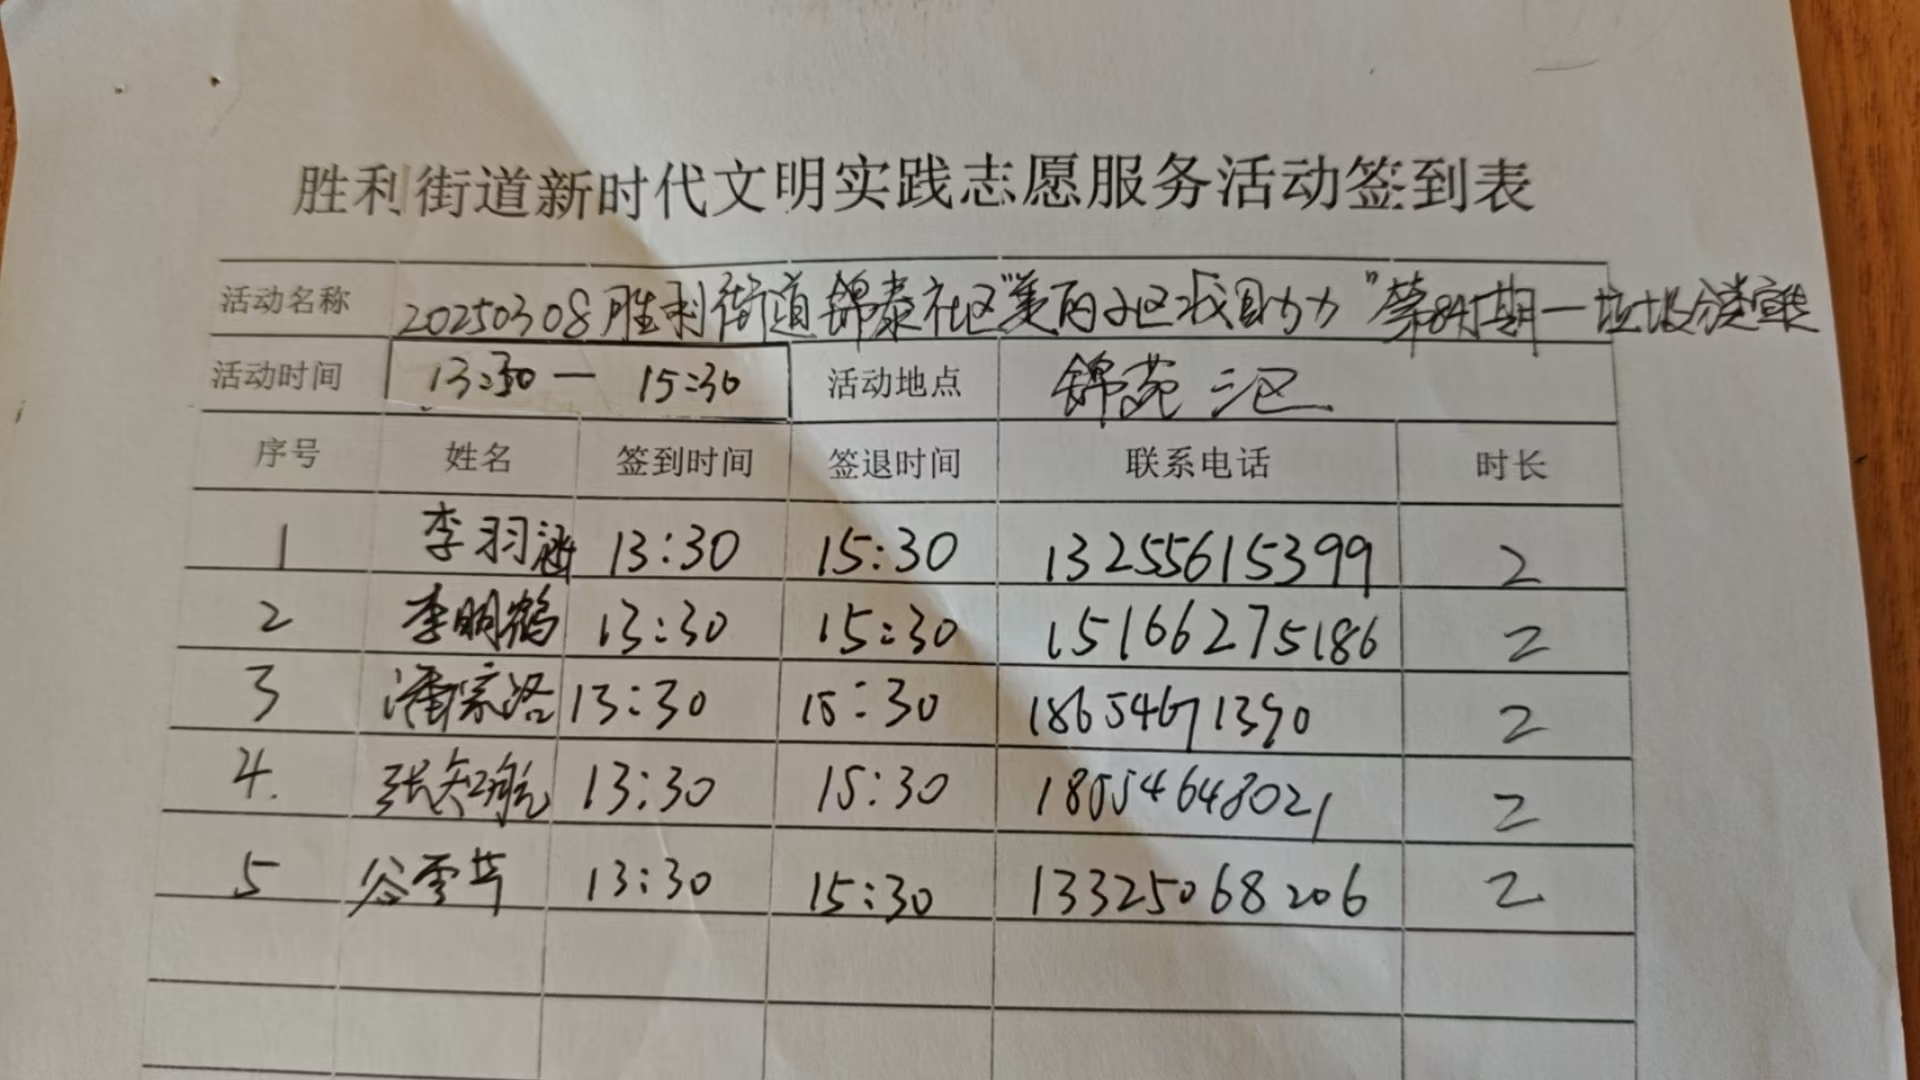 胜利街道新时代文明实践志愿服务活动签到表
活动名称 20250308胜利街道锦泰社区"美丽小区我助力"第 期—垃圾分类宣传
活动时间 13:30— 15:30 活动地点 锦苑三区
序号 姓名 签到时间 签退时间 联系电话 时长
1 李羽涵 13:30 15:30 13255615399 2
2 李明鹤 13:30 15:30 15166275186 2
3 潘宗洛 13:30 15:30 18654671390 2
4. 张知航 13:30 15:30 18554648021 2
5 谷雪芹 13:30 15:30 13325068206 2